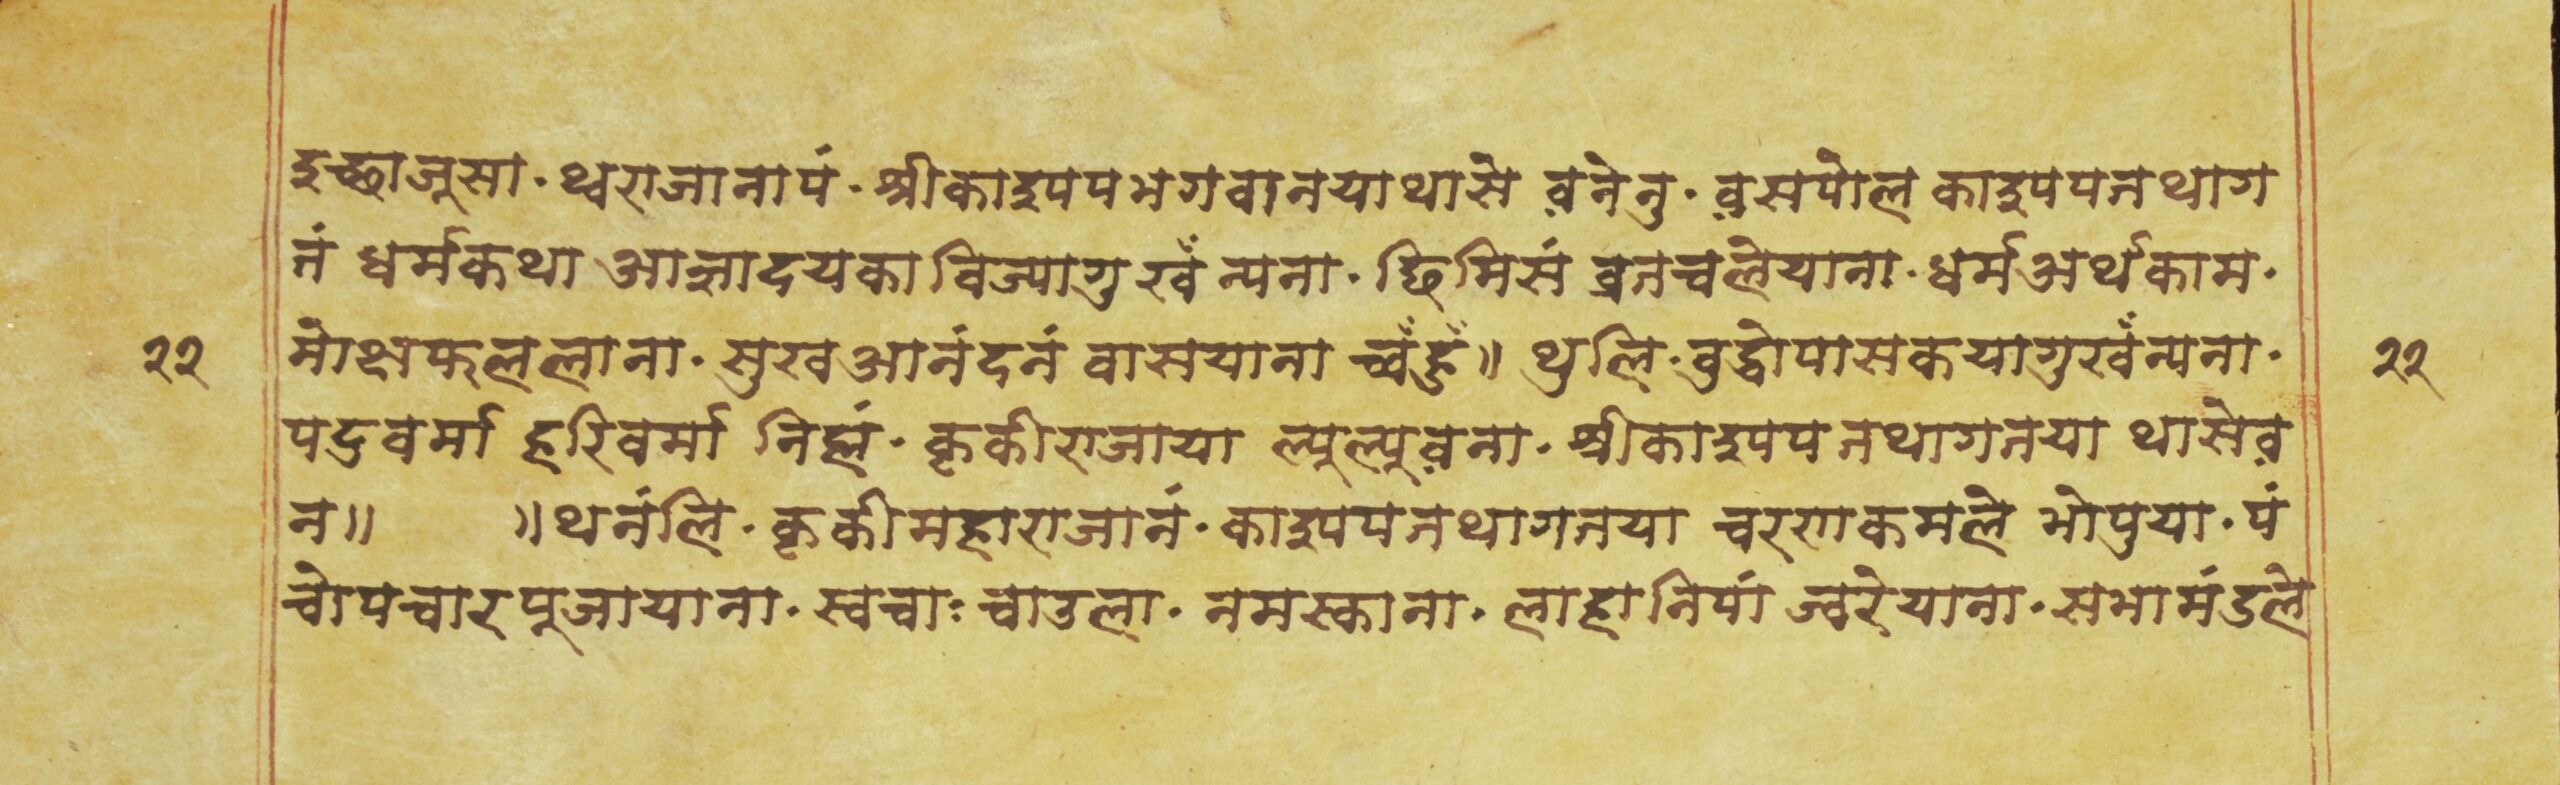 इच्छाजूसा· थ्वराजानापं· श्रीकाश्यपभगवानयाथासे व़नेनु· व़सपोल काश्यपतथाग
तं धर्मकथा आज्ञादयका विज्यागु खँ न्यना· छिमिसं व्रतचलेयाना· धर्मअर्थकाम·
२२ मोक्षफललाना· सुखआनंदनं वासयाना च्वँहुँ॥ थुलि· बुद्धोपासकयागुखँन्यना· २२
पदुवर्मा हरिवर्मा निह्मं· कृकीराजाया ल्यूल्यूव़ना· श्रीकाश्यपतथागतया थासेव़
न॥ ॥थनंलि· कृकीमहाराजानं· काश्यपतथागतया चरणकमले भोपुया· पं
चोपचारपूजायाना· स्वचाः चाउला· नमस्काना· लाहानिपां ज्वरेयाना· सभामंडले